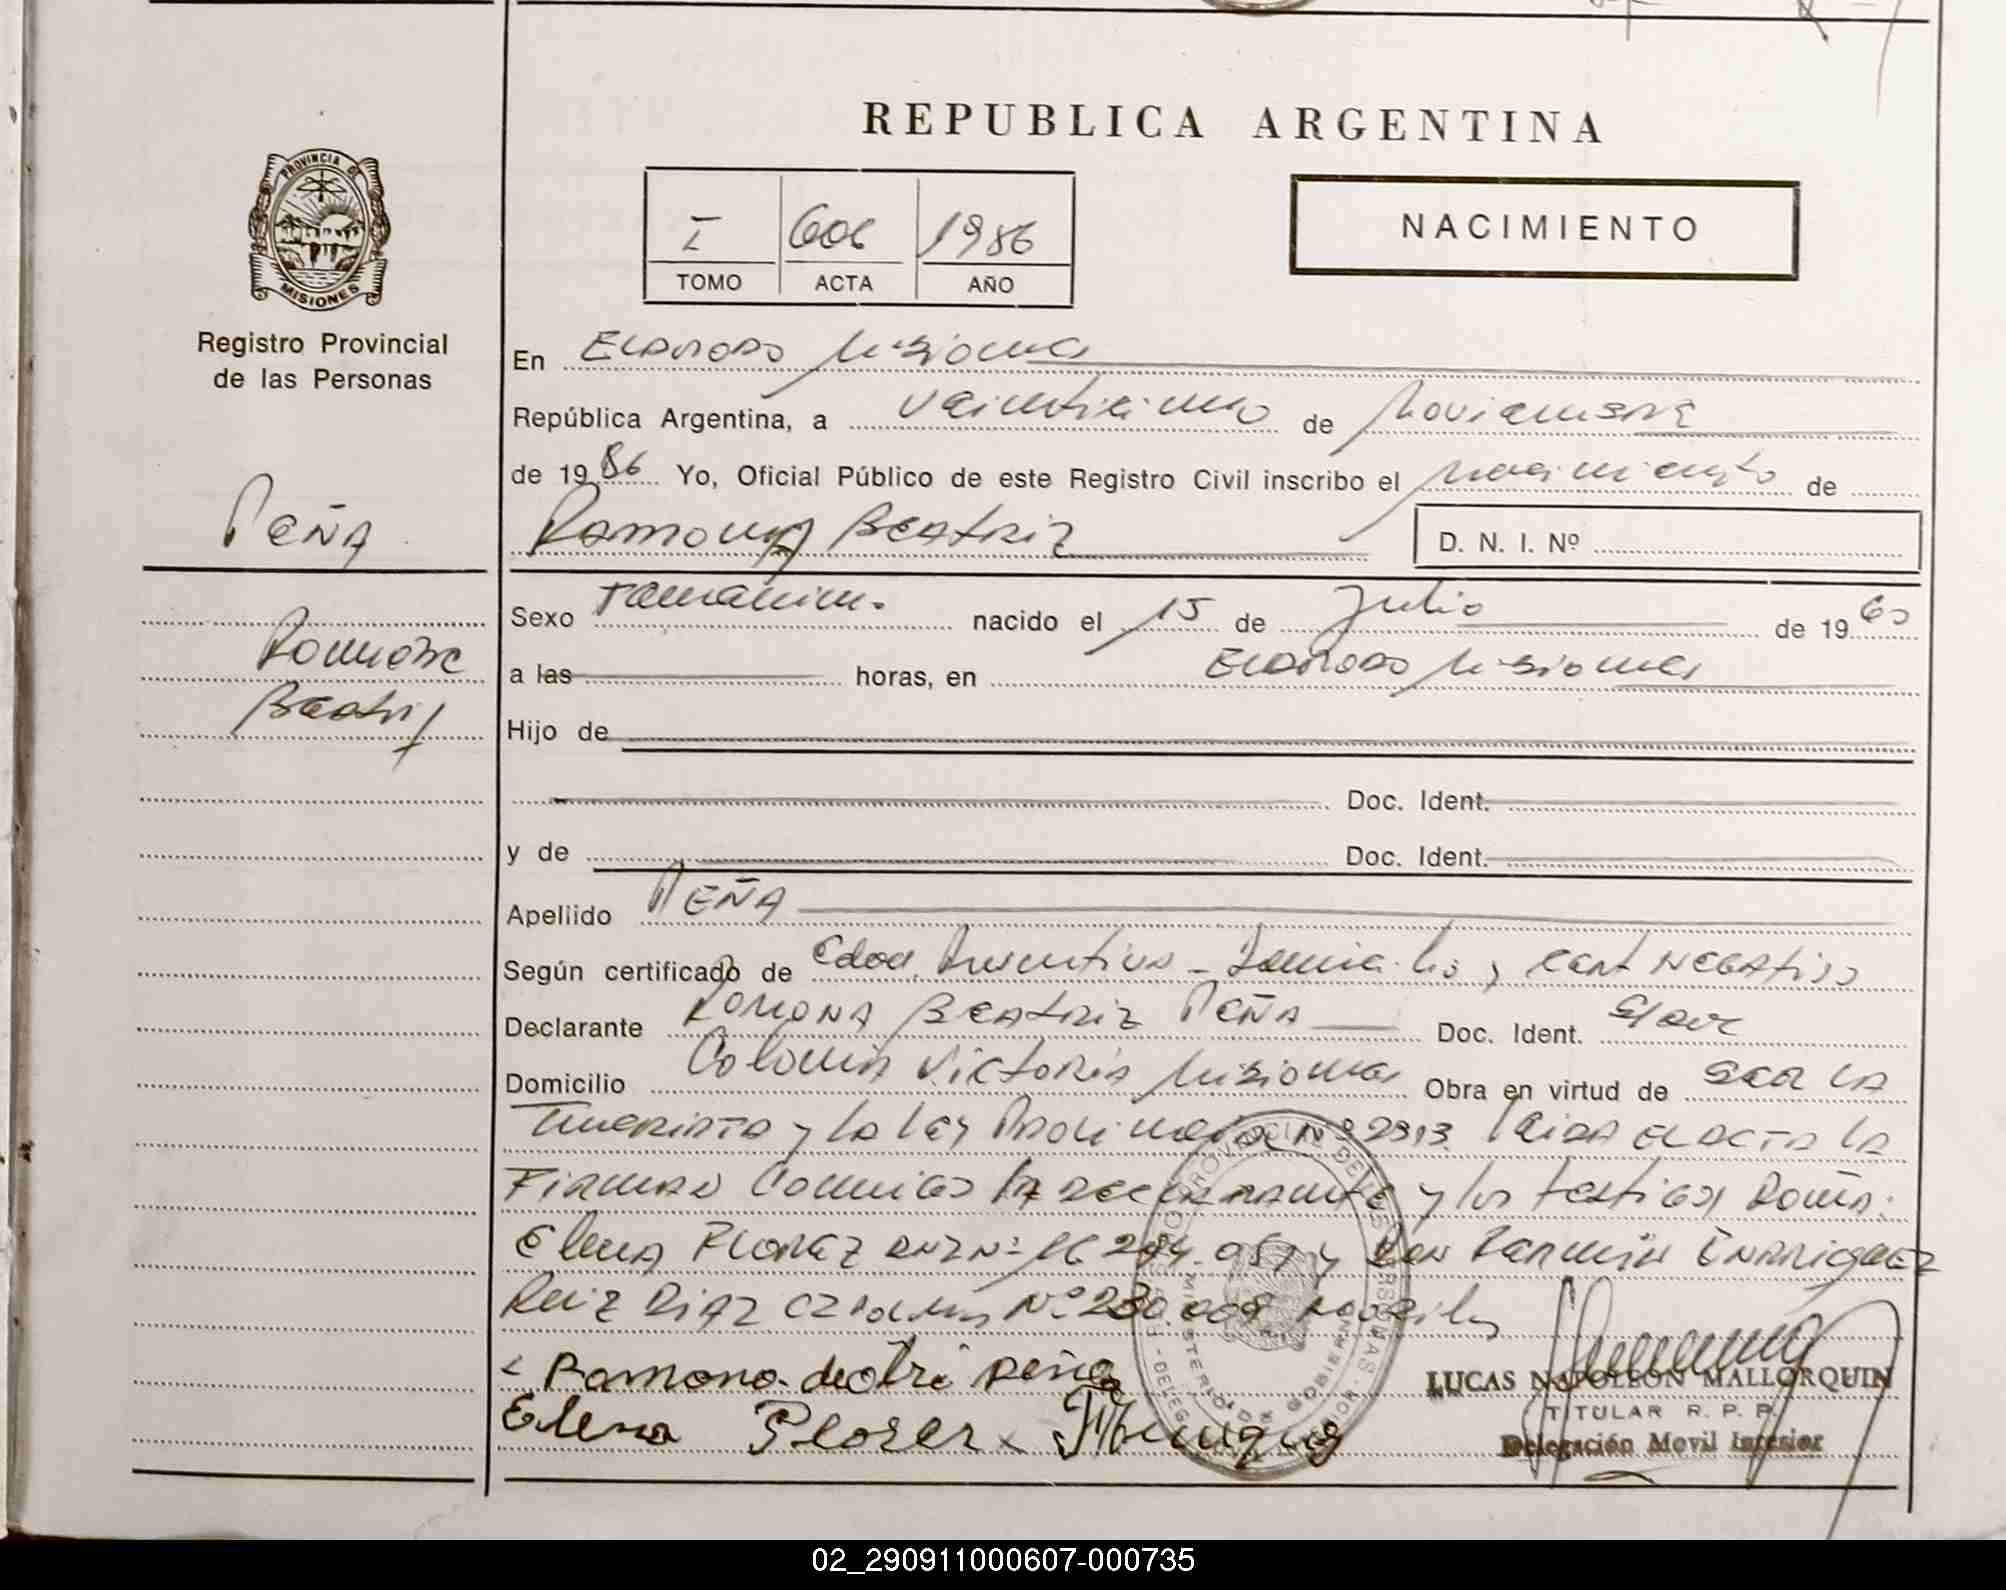 REPUBLICA ARGENTINA
PROVINCIA DE
MISIONES
Registro Provincial
de las Personas
I 606 1986
TOMO ACTA AÑO
NACIMIENTO
En ELDORADO Misiones
República Argentina, a veintiuno de Noviembre
de 1986 Yo, Oficial Público de este Registro Civil inscribo el nacimiento de
PEÑA
RAMONA BEATRIZ
D. N. I. Nº
Ramona
Beatriz
Sexo Femenino. nacido el 15 de Julio de 1960
a las horas, en ELDORADO Misiones
Hijo de
Doc. Ident.
y de Doc. Ident.
Apellido PEÑA
Según certificado de Edad Presuntiva - Domicilio y CERT NEGATIVO
Declarante RAMONA BEATRIZ PEÑA Doc. Ident.
Domicilio Colonia VICTORIA Misiones Obra en virtud de SER LA
y la Ley Provincial Nº 2313. Leida EL ACTA LA
FIRMAN Conmigo LA DECLARANTE y los testigos Doña:
Elena FLOREZ DNI Nº 16 294.051 y Don FERMIN ENRIQUEZ
RUIZ DIAZ Nº 230.009
x Ramona. Peña
Elena Florez x
LUCAS NAPOLEON MALLORQUIN
TITULAR R. P. P.
Delegación Movil Inferior
02_290911000607-000735